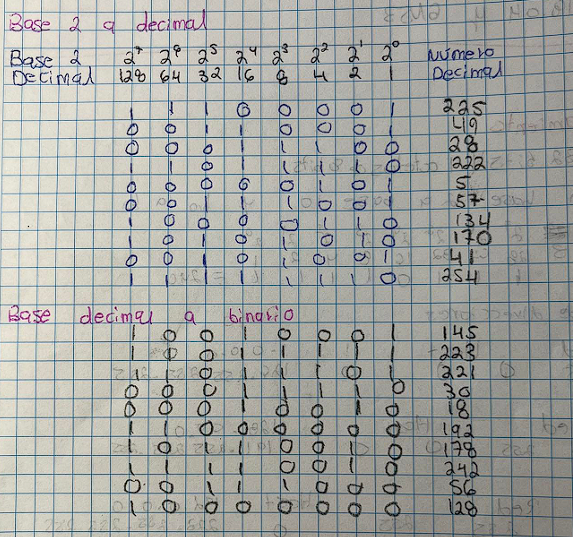 Base 2 a decimal
Base 2 2⁷ 2⁶ 2⁵ 2⁴ 2³ 2² 2¹ 2⁰ Número
Decimal 128 64 32 16 8 4 2 1 Decimal
1 1 1 0 0 0 0 1 225
0 0 1 1 0 0 0 1 49
0 0 0 1 1 1 0 0 28
1 1 0 1 1 1 1 0 222
0 0 0 0 0 1 0 1 5
0 0 1 1 1 0 0 1 57
1 0 0 0 0 1 1 0 134
1 0 1 0 1 0 1 0 170
0 0 1 0 1 0 0 1 41
1 1 1 1 1 1 1 0 254
Base decimal a binario
1 0 0 1 0 0 0 1 145
1 0 0 1 1 1 1 1 223
1 1 0 1 1 1 0 1 221
0 0 0 1 1 1 1 0 30
0 0 0 1 0 0 1 0 18
1 1 0 0 0 0 0 0 192
1 0 1 1 0 0 1 0 178
1 1 1 1 0 0 1 0 242
0 0 1 1 1 0 0 0 56
1 0 0 0 0 0 0 0 128